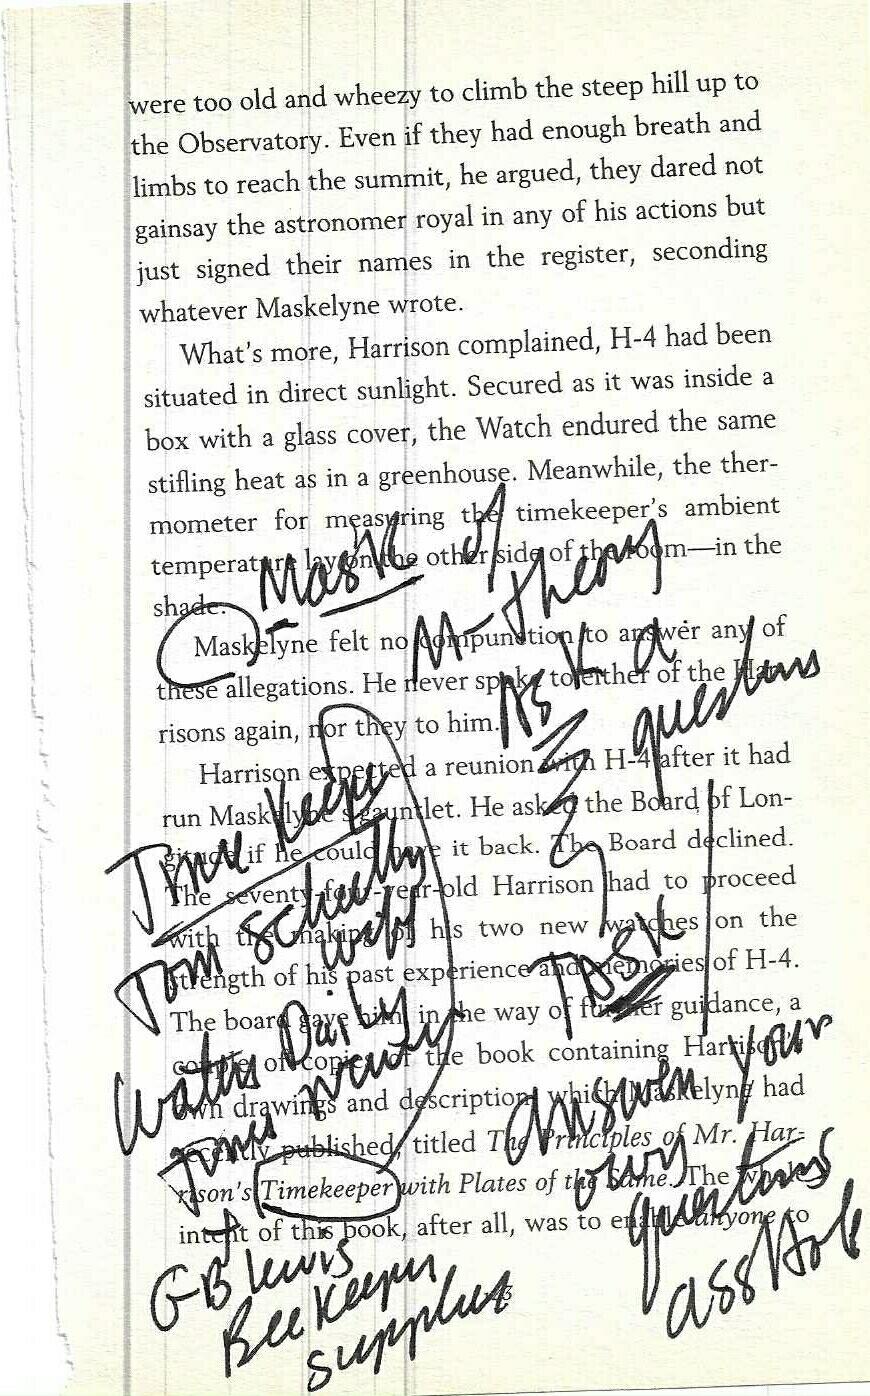 were too old and wheezy to climb the steep hill up to
the Observatory. Even if they had enough breath and
limbs to reach the summit, he argued, they dared not
gainsay the astronomer royal in any of his actions but
just signed their names in the register, seconding
whatever Maskelyne wrote.
What's more, Harrison complained, H-4 had been
situated in direct sunlight. Secured as it was inside a
box with a glass cover, the Watch endured the same
stifling heat as in a greenhouse. Meanwhile, the ther-
mometer for measuring the timekeeper's ambient
temperature lay on the other side of the room—in the
shade.
Maskelyne felt no compunction to answer any of
these allegations. He never spoke to either of the Har-
risons again, nor they to him.
Harrison expected a reunion with H-4 after it had
run Maskelyne's gauntlet. He asked the Board of Lon-
gitude if he could have it back. The Board declined.
The seventy-four-year-old Harrison had to proceed
with the making of his two new watches on the
strength of his past experience and memories of H-4.
The board gave him, in the way of further guidance, a
couple of copies of the book containing Harrison's
own drawings and description, which Maskelyne had
recently published, titled The Principles of Mr. Har-
rison's Timekeeper with Plates of the Same. The whole
intent of this book, after all, was to enable anyone to
- Mask of
M-Theory
Ask a
question
Task
answer your
own
questions
asshole
Time Keeper
Tom
with
Waters Daily
Jones
GB Lewis
Beekeeper
supplies